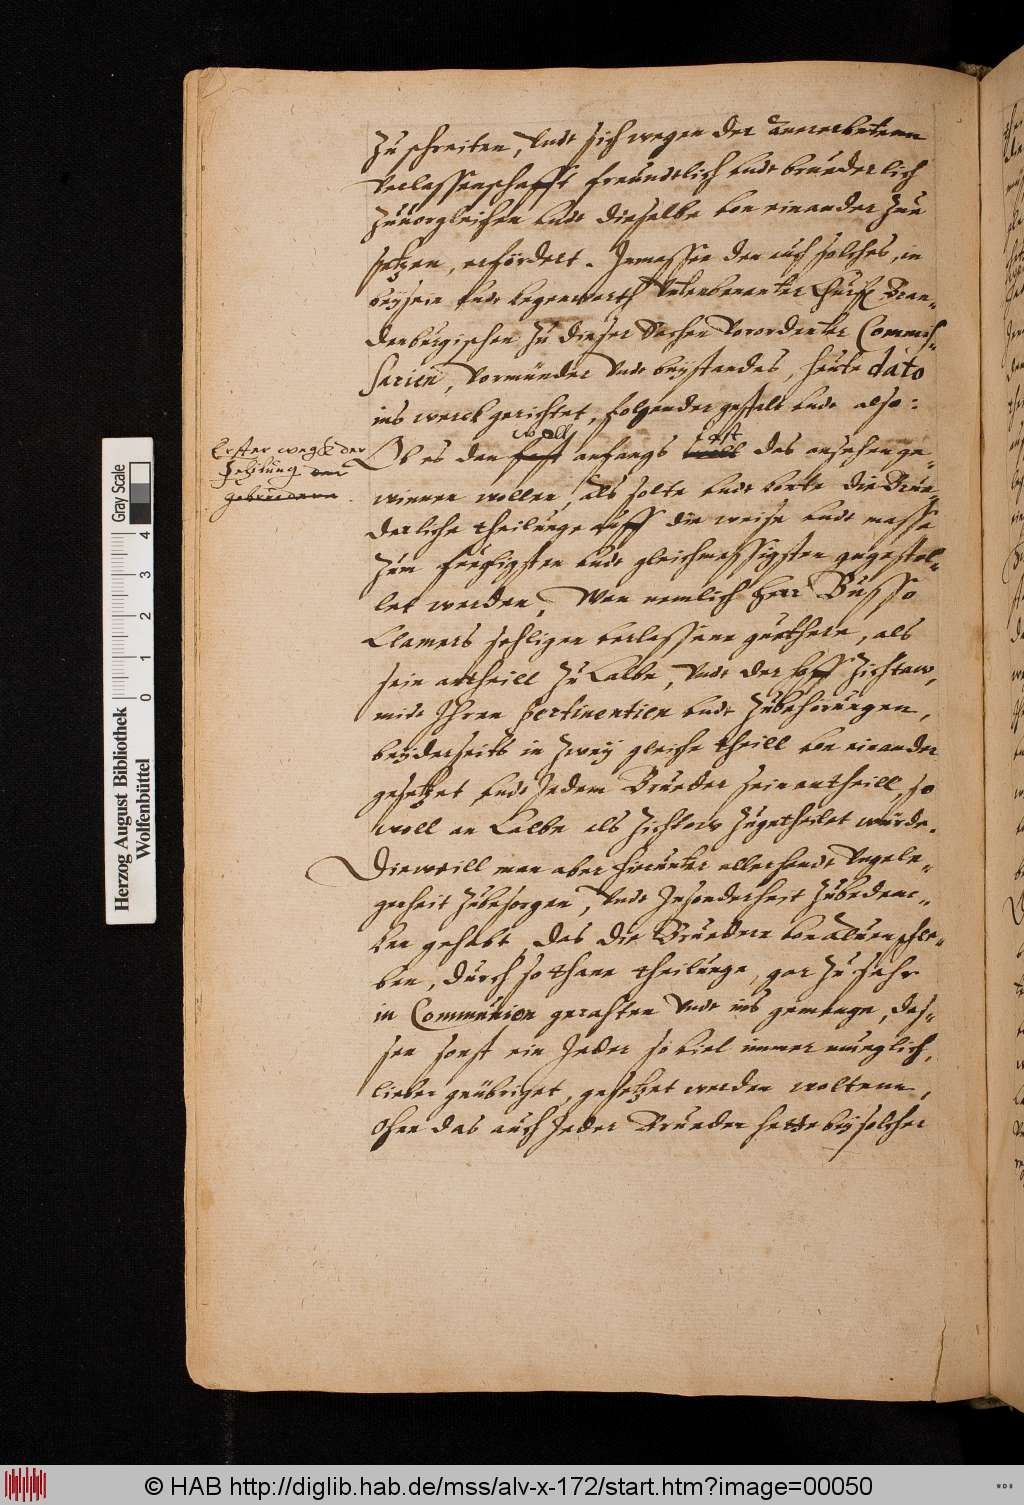 Zu schreiten, Vndt sich wegen der anererbetenn
Verlassenschafft freundtlich vndt bruederlich
Zuuorgleichen vndt dieselbe von einander Zue
setzen, erfördert. Inmassen den auch solches, in
beÿsein vndt kegenwarth Vntenbenanter Churf. Bran-
denburgischen Zu dieser Sachen Verordenter Commis-
sarien, Vormünder Vndt beÿstandes, heute dato
ins werck gerichtet, folgender gestalt vndt also:
Erster wegk der
Theilung
gebruedere
woll fast
Ob es den fast anfangs woll das ansehen ge-
winnen wollen, als solte vndt konte die Brue-
derliche theilunge auff die weise vndt masse
Zum fueglichsten vndt gleichmessigsten angestel-
let werden, Wan nemlich Herr Busso
Clamers sehligen verlassene guethere, als
sein antheill Zu Calbe, Vndt der hoff Zichtaw,
mitt Ihren pertinentien vndt Zubehorungen,
beÿderseits in Zweÿ gleiche theill von einander
gesetzet vndt Jedem Brueder sein antheill, so
woll an Calbe als Zichtow Zugetheilet würde.
Dieweill man aber hirunter allerhandt Vngele-
genheit Zubesorgen, Vndt Insonderheit Zubedenc-
ken gehabt, das die Bruedere von Aluenschle-
ben, durch sothane theilunge, gar Zu sehr
in Communion gerahten Vndt ins gemenge, des-
sen sonst ein Jeder so viel immer mueglich,
lieber geübriget, gesetzet werden woltenn,
Ohne das auch Jeder Brueder hette beÿ solcher
Herzog August Bibliothek
Wolfenbüttel
Gray Scale
0 1 2 3 4
© HAB http://diglib.hab.de/mss/alv-x-172/start.htm?image=00050